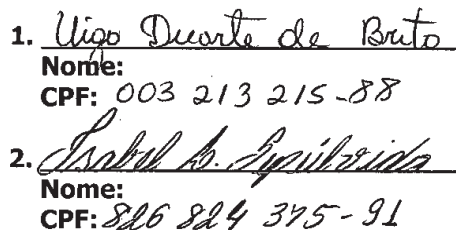 1. Uigo Duarte de Brito
Nome:
CPF: 003 213 215-88
2. Isabel A. Sepúlveda
Nome:
CPF: 826 824 375-91